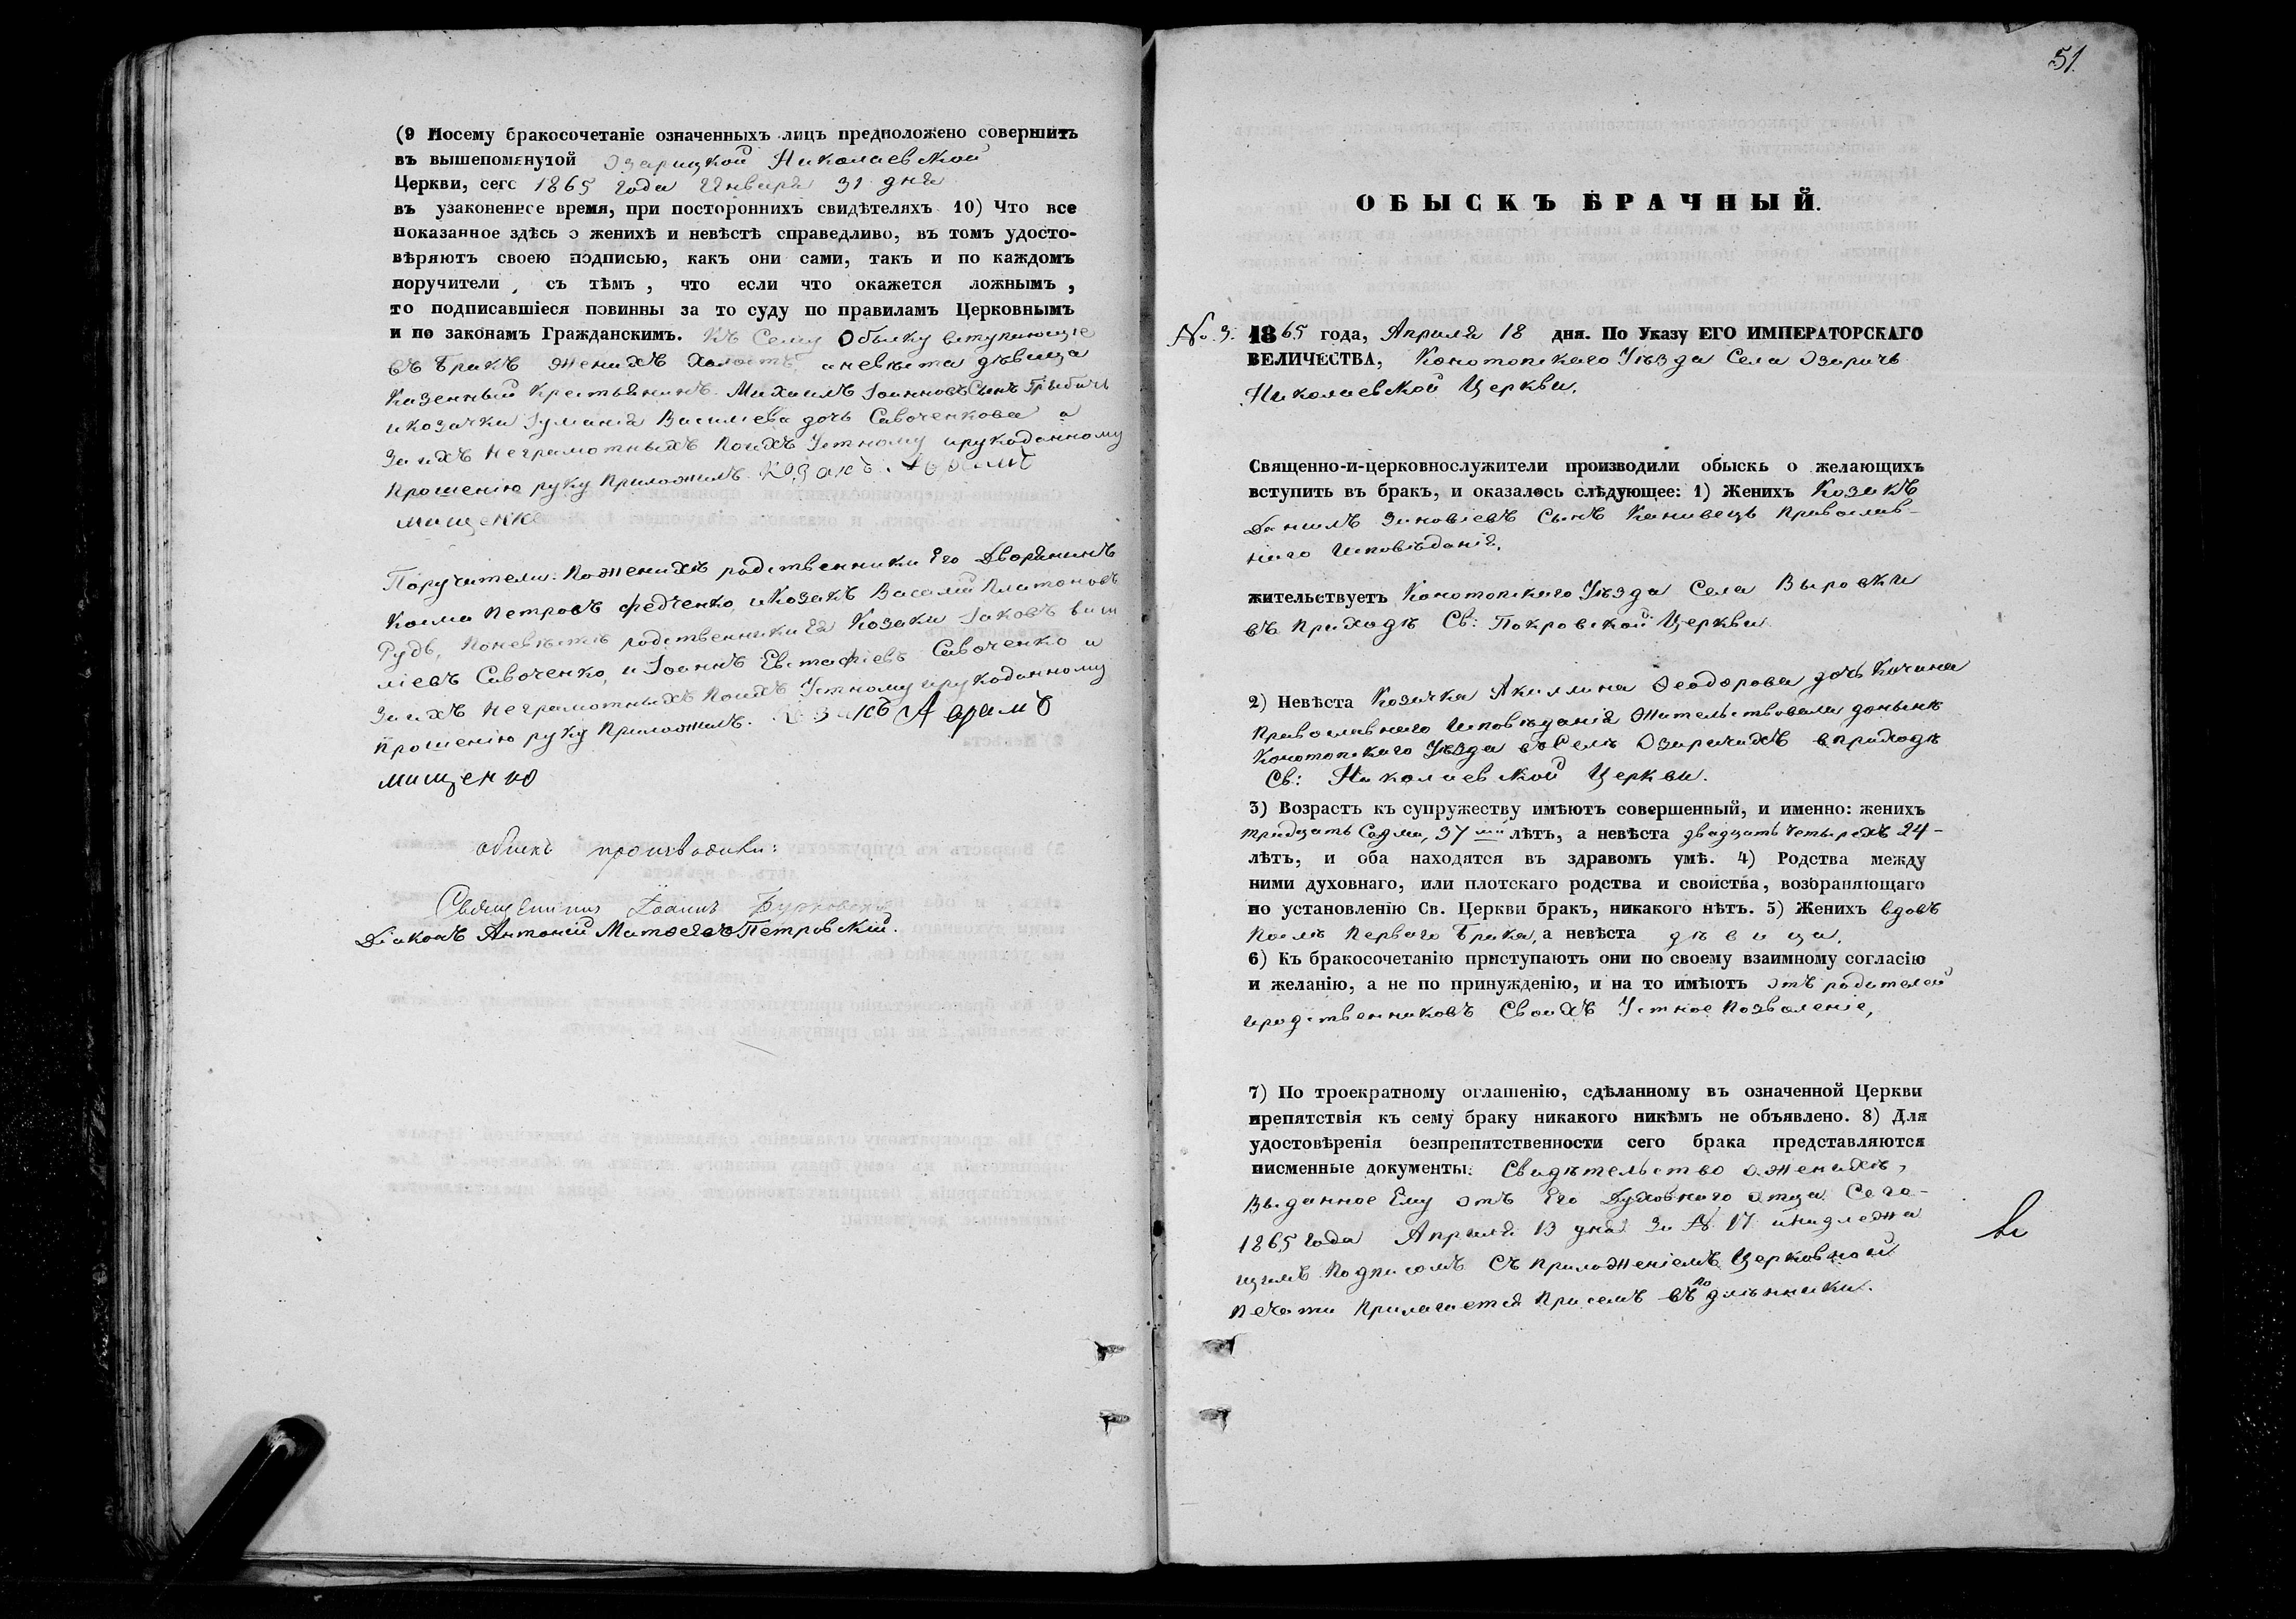 (9 Посему бракосочетаніе означенныхъ лицъ предположено совершить
въ вышепомянутой Озарицкой Николаевской
Церкви, сего 1865 года Января 31 дня
въ узаконенное время, при постороннихъ свидѣтеляхъ 10) Что все
показанное здѣсь о женихѣ и невѣстѣ справедливо, въ томъ удосто-
вѣряютъ своею подписью, какъ они сами, такъ и по каждомъ
поручители, съ тѣмъ, что если что окажется ложнымъ,
то подписавшіеся повинны за то суду по правиламъ Церковнымъ
и по законамъ Гражданскимъ. Къ Сему Обыску вступающіе
въ Бракъ женихъ Холостъ, а невѣста дѣвица
Казенный Крестьянинъ Михаилъ Іоанновъ Сынъ
и козачка Іуліанія Василіева дочь Савоченкова а
За ихъ Неграмотныхъ Поихъ Устному ирукоданному
Прошенію руку Приложилъ Козакъ Аврамъ
мищенко
Поручители: Поженихѣ родственники Его Дворянинъ
Косма Петровъ Федченко, иКозакъ Василій Платоновъ
Рудь, Поневѣстѣ родственники Ея Козаки Іаковъ Васи
ліевъ Савоченко, и Іоаннъ Евстафіевъ Савоченко а
За ихъ Неграмотныхъ Поихъ Устному ирукоданному
Прошенію руку Приложилъ. Козакъ Аврамъ
мищенко
обыскъ производили:
Священникъ Іоаннъ
Діаконъ Антоній Петровскій.
51.
ОБЫСКЪ БРАЧНЫЙ.
No. 3. 1865 года, Апреля 18 дня. По Указу ЕГО ИМПЕРАТОРСКАГО
ВЕЛИЧЕСТВА, Конотопскаго Уѣзда Села Озаричъ
Николаевской Церкви.
Священно-и-церковнослужители производили обыскь о желающихъ
вступить въ бракъ, и оказалось слѣдующее: 1) Женихъ Козакъ
Даніилъ Зиновіевъ Сынъ Канивецъ Православ-
наго Исповѣданія,
жительствуетъ Конотопскаго Уѣзда Села Выровки
въ Приходѣ Св: Покровской Церкви
2) Невѣста Козачка Акилина Ѳеодорова дочь Кочина
Православнаго Исповѣданія Жительствовала донынѣ
Конотопскаго Уѣзда въ Селѣ Озаричахъ вприходѣ
Св: Николаевской Церкви.
3) Возрастъ къ супружеству имѣютъ совершенный, и именно: женихъ
тридцать Седми, 37 ми лѣтъ, а невѣста двадцать четырехъ 24-
лѣтъ, и оба находятся въ здравомъ умѣ. 4) Родства между
ними духовнаго, или плотскаго родства и свойства, возбраняющаго
по установленію Св. Церкви бракъ, никакого нѣтъ. 5) Женихъ вдовъ
Послѣ Перваго Брака, а невѣста дѣвица,
6) Къ бракосочетанію приступаютъ они по своему взаимному согласію
и желанію, а не по принужденію, и на то имѣютъ Отъ родителей
иродственниковъ Своихъ Устное Позволеніе,
7) По троекратному оглашенію, сдѣланному въ означенной Церкви
препятствія къ сему браку никакого никѣмъ не объявлено. 8) Для
удостовѣренія безпрепятственности сего брака представляются
писменные документы: Свидѣтельство о женихѣ,
Выданное Ему Отъ Его Духовнаго Отца Сего-
1865 года Апреля 13 дня За № 17 инадлежа
щимъ Подписомъ Съ приложеніемъ Церковной
Печати Прилагается Присемъ въ подлѣнники.